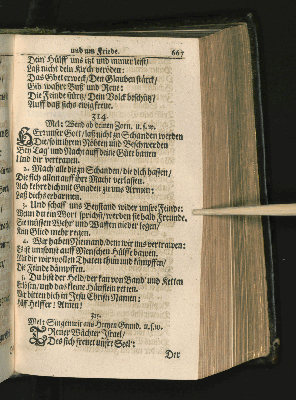 und um Friede. 667
Dein' Hülff uns itzt und immer leist/
Laß nicht dein Kirch veröden:
Das Gbet erweck/ Den Glauben stärck/
Gib wahre Buß und Reue:
Die Feinde stürtz/ Dein Volck beschütz/
Auff daß sichs ewig freue.
314.
Mel: Wend ab deinen Zorn. u. s. w.
HErr unser Gott/ laß nicht zu Schanden werden
Die/ so in ihren Nöthen und Beschwerden
Bey Tag' und Nacht auff deine Güte hoffen
Und dir vertrauen.
2. Mach alle die zu Schanden/ die dich hassen/
Die sich allein auff ihre Macht verlassen.
Ach kehre dich mit Gnaden zu uns Armen:
Laß dichs erbarmen.
3. Und schaff' uns Beystand wider unsre Feinde:
Wenn du ein Wort sprichst/ werden sie bald Freunde.
Sie müssen Wehr' und Waffen nieder legen/
Kein Glied mehr regen.
4. Wir haben Niemand/ dem wir uns vertrauen:
Es ist umsonst auff Menschen-Hülffe bauen.
Mit dir wir wollen Thaten thun und kämpffen/
Die Feinde dämpffen.
5. Du bist der Held/ der kan von Band' und Ketten
Erlösen/ und das kleine Häuflein retten.
Wir bitten dich in Jesu Christi Namen:
Hilff Helffer: Amen!
315.
Mel: Singen wir aus Hertzen Grund. u. s. w.
TReuer Wächter Israel/
Des sich freuet unsre Seel':
Der